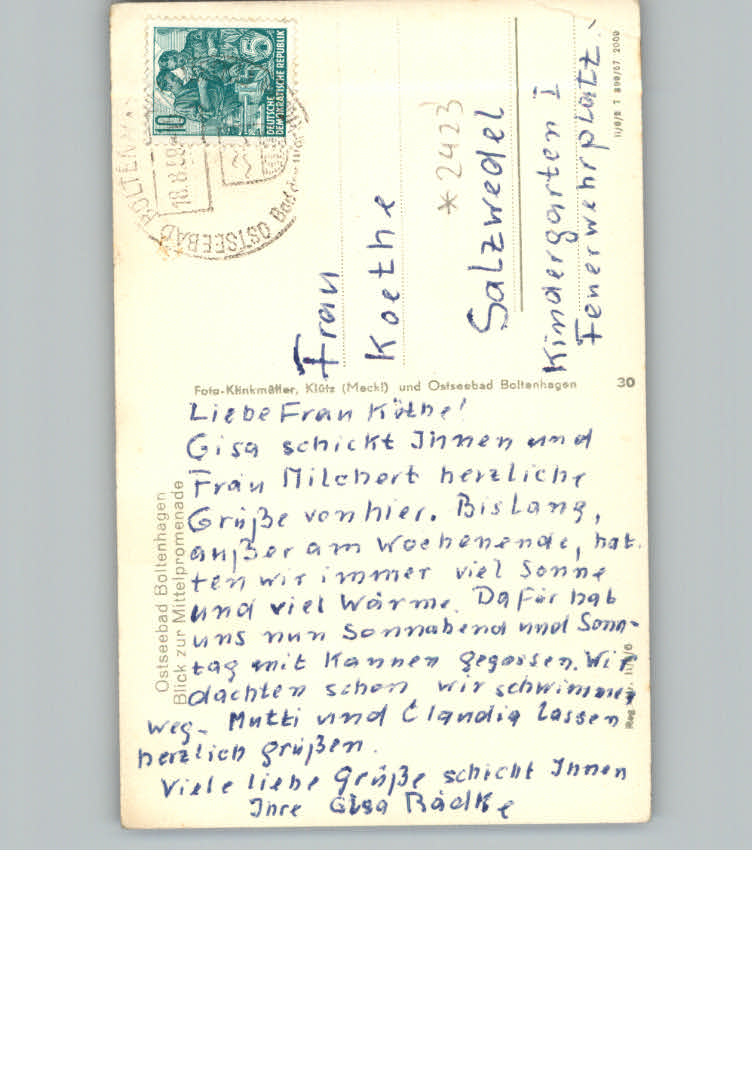 10
5
DEUTSCHE
DEMOKRATISCHE REPUBLIK
18.8.
OSTSEEBAD
Frau
Koethe
*2423
Salzwedel
Kindergarten I
Feuerwehrplatz.
Foto-Klinkmüller, Klütz (Meckl) und Ostseebad Boltenhagen
30
Ostseebad Boltenhagen
Blick zur Mittelpromenade
Liebe Frau Köthe!
Gisa schickt Ihnen und
Frau Milchert herzliche
Grüße von hier. Bislang,
außer am Wochenende, hat-
ten wir immer viel Sonne
und viel Wärme. Dafür hab
uns nun Sonnabend und Sonn-
tag mit Kannen gegossen. Wir
dachten schon wir schwimmen
weg. Mutti und Claudia lassen
herzlich grüßen.
Viele liebe Grüße schickt Ihnen
Ihre Gisa Rädke